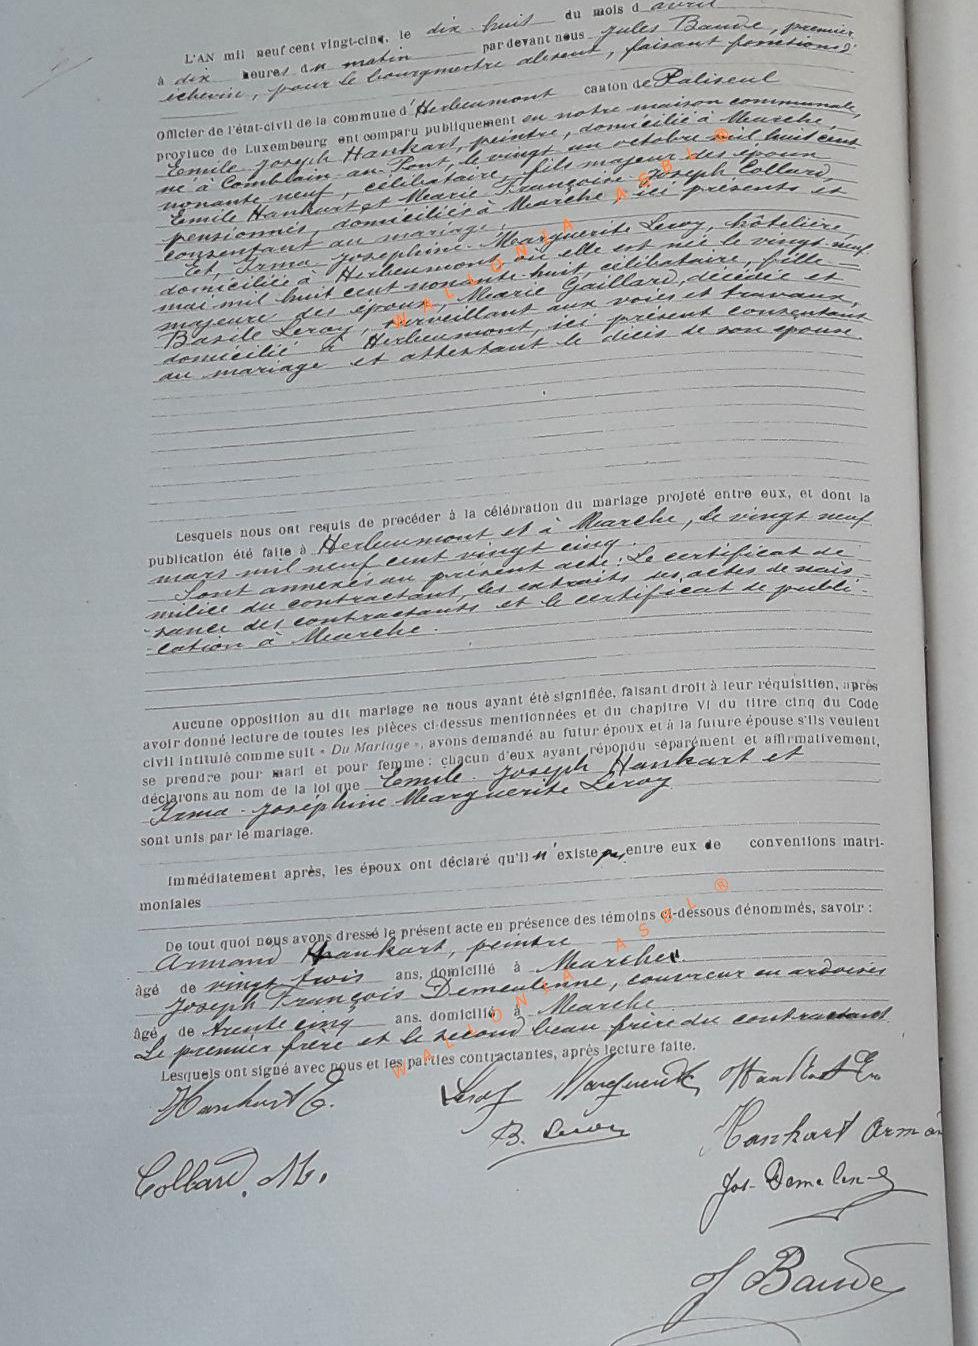 L'AN mil neuf cent vingt-cinq, le dix-huit du mois d'avril
à dix heures du matin par devant nous Jules Baude, premier
échevin, pour le bourgmestre absent, faisant fonctions d'
Officier de l'état-civil de la commune d'Herbeumont canton de Paliseul
province de Luxembourg ont comparu publiquement en notre maison communale,
Emile Joseph Hankart, peintre, domicilié à Marche,
né à Comblain-au-Pont, le vingt un octobre mil huit cent
nonante neuf, célibataire, fils majeur des époux
Emile Hankart et Marie Françoise Joseph Collard,
pensionnés, domiciliés à Marche, ici présents et
consentant au mariage.
Et, Irma-Joséphine-Marguerite Leroy, hôtelière,
domiciliée à Herbeumont, où elle est née le vingt-neuf
mai mil huit cent nonante-huit, célibataire, fille
majeure des époux, Marie Gaillard, décédée et
Basile Leroy, surveillant aux voies et travaux,
domicilié à Herbeumont, ici présent consentant
au mariage et attestant le décès de son épouse
Lesquels nous ont requis de procéder à la célébration du mariage projeté entre eux, et dont la
publication été faite à Herbeumont et à Marche, le vingt neuf
mars mil neuf cent vingt cinq.
Sont annexés au présent acte : Le certificat de
milice du contractant, les extraits des actes de nais-
sance des contractants et le certificat de publi-
cation à Marche.
Aucune opposition au dit mariage ne nous ayant été signifiée, faisant droit à leur réquisition, après
avoir donné lecture de toutes les pièces ci-dessus mentionnées et du chapitre VI du titre cinq du Code
civil intitulé comme suit « Du Mariage », avons demandé au futur époux et à la future épouse s'ils veulent
se prendre pour mari et pour femme : chacun d'eux ayant répondu séparément et affirmativement,
déclarons au nom de la loi que Emile-Joseph Hankart et
Irma-Joséphine Marguerite Leroy
sont unis par le mariage.
Immédiatement après, les époux ont déclaré qu'il n'existe pas entre eux de conventions matri-
moniales
De tout quoi nous avons dressé le présent acte en présence des témoins ci-dessous dénommés, savoir :
Armand Hankart, peintre
âgé de vingt trois ans, domicilié à Marche
Joseph François Demeulenne, couvreur en ardoises
âgé de trente cinq ans. domicilié à Marche
Le premier frère et le second beau frère du contractant
Lesquels ont signé avec nous et les parties contractantes, après lecture faite.
Hankart E. Leroy Marguerite Hankart Em
B. Leroy Hankart Arman
Collard. M. Jos.
J Baude
WALLONIA ASBL ®
WALLONIA ASBL ®